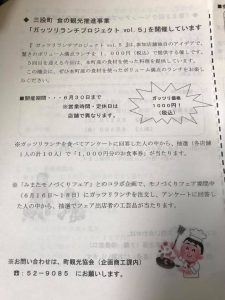 ◆ 三股町 食の観光推進事業
「ガッツリランチプロジェクト vol.5」を開催しています
「ガッツリランチプロジェクト vol.5」は、参加店舗独自のアイデアで、
驚きのボリューム満点ランチを 1,000円(税込)で提供する催しです。
5回目を迎える今回は、本町産の食材を使った料理を提供しています。
この機会に、ぜひ本町産の食材を使ったボリューム満点のランチをお楽し
みください。
■開催期間・・・6月30日まで
※営業時間・定休日は
店舗で異なります。
ガッツリ価格
1000円
(税込)
※ガッツリランチを食べてアンケートに回答した人の中から、抽選(各店舗
1人の計10人)で「1,000円分のお食事券」が当たります。
※「みまたモノづくりフェア」とのコラボ企画で、モノづくりフェア期間中
(6月16日~18日)にガッツリランチを注文し、アンケートに回答し
た人の中から、抽選でフェア出店者の工芸品が当たります。
※お問い合わせは、町観光協会(企画商工課内)
☎:52-9085 にお願いします。